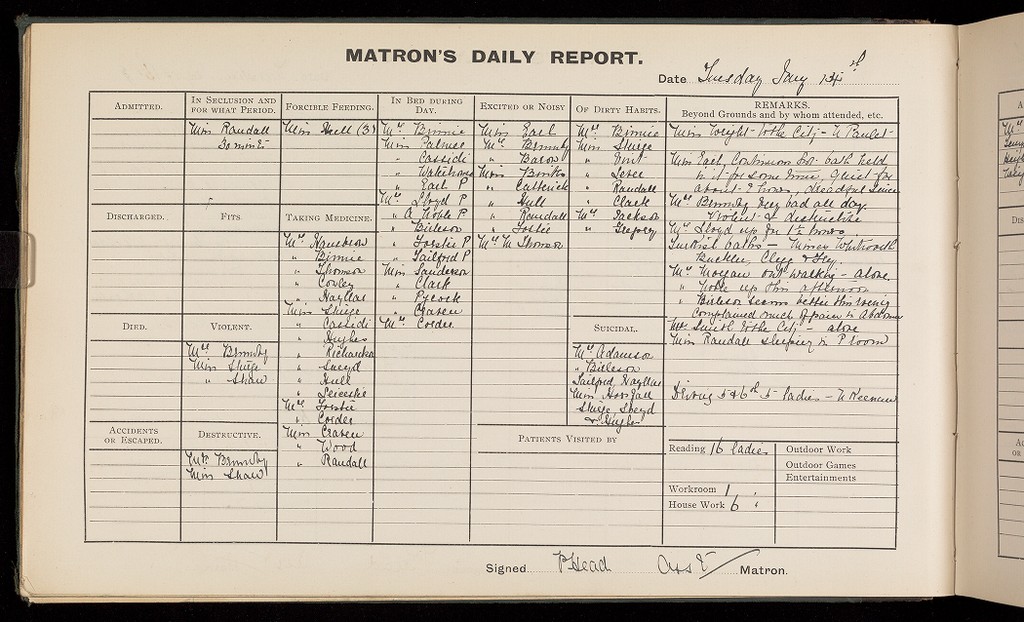 MATRON'S DAILY REPORT.
Date Tuesday Jany
ADMITTED.
IN SECLUSION AND
FOR WHAT PERIOD.
Miss Randall
FORCIBLE FEEDING.
Miss Hull (3)
IN BED DURING
DAY.
Mrs Binnie
Miss Palmer
" Cassidi
" Waterhouse
" Earl P
Mrs Lloyd P
" A Noble P
" Billeson
" Forstie P
" Tailford P
Miss Sanderson
" Clark
" Pycock
" Craven
Mrs Corder
EXCITED OR NOISY
Miss Earl
Mrs Brumby
" Baron
Miss Binks
" Catterick
" Hull
" Randall
" Forstie
Mrs M Thomson
OF DIRTY HABITS.
Mrs Binnie
Miss Sturge
"
"
" Randall
" Clark
Mrs Jackson
" Gregory
REMARKS.
Beyond Grounds and by whom attended, etc.
Miss Wright to the City - N Paulet
Miss Earl, Continuous bath held
in it for some time, quiet for
about 2 hours, dreadful since
Mrs Brumby very bad all day.
Violent & destructive
Mrs Lloyd up for 1½ hours.
Turkish baths - Misses Whitworth
Buckler, Clegg &
Mrs Morgan out walking - alone
" Noble up this afternoon
" Billeson seems better this evening
Complained much of pain in Abdomen
Smith to the City - alone
Miss Randall sleeping in P room
Driving 5 & 6th 5 ladies - N Keenan
DISCHARGED.
FITS
TAKING MEDICINE.
Mrs Harrison
" Binnie
" Thomson
" Cowley
" Hayllar
Miss Sturge
" Cassidi
" Hughes
" Richards
" Sneyd
" Hull
" Leicester
Mrs Forstie
" Corder
Miss Craven
" Wood
" Randall
DIED.
VIOLENT.
Mrs Brumby
Miss Sturge
" Shaw
SUICIDAL.
Mrs Adamson
" Billeson
Tailford, Hayllar
Miss Horsfall
Sturge, Sneyd
& Hughes
ACCIDENTS
OR ESCAPED.
DESTRUCTIVE.
Mrs Brumby
Miss Shaw
PATIENTS VISITED BY
Reading 16 ladies
Workroom 1 "
House Work 6 "
Outdoor Work
Outdoor Games
Entertainments
Signed P Head Asst Matron.